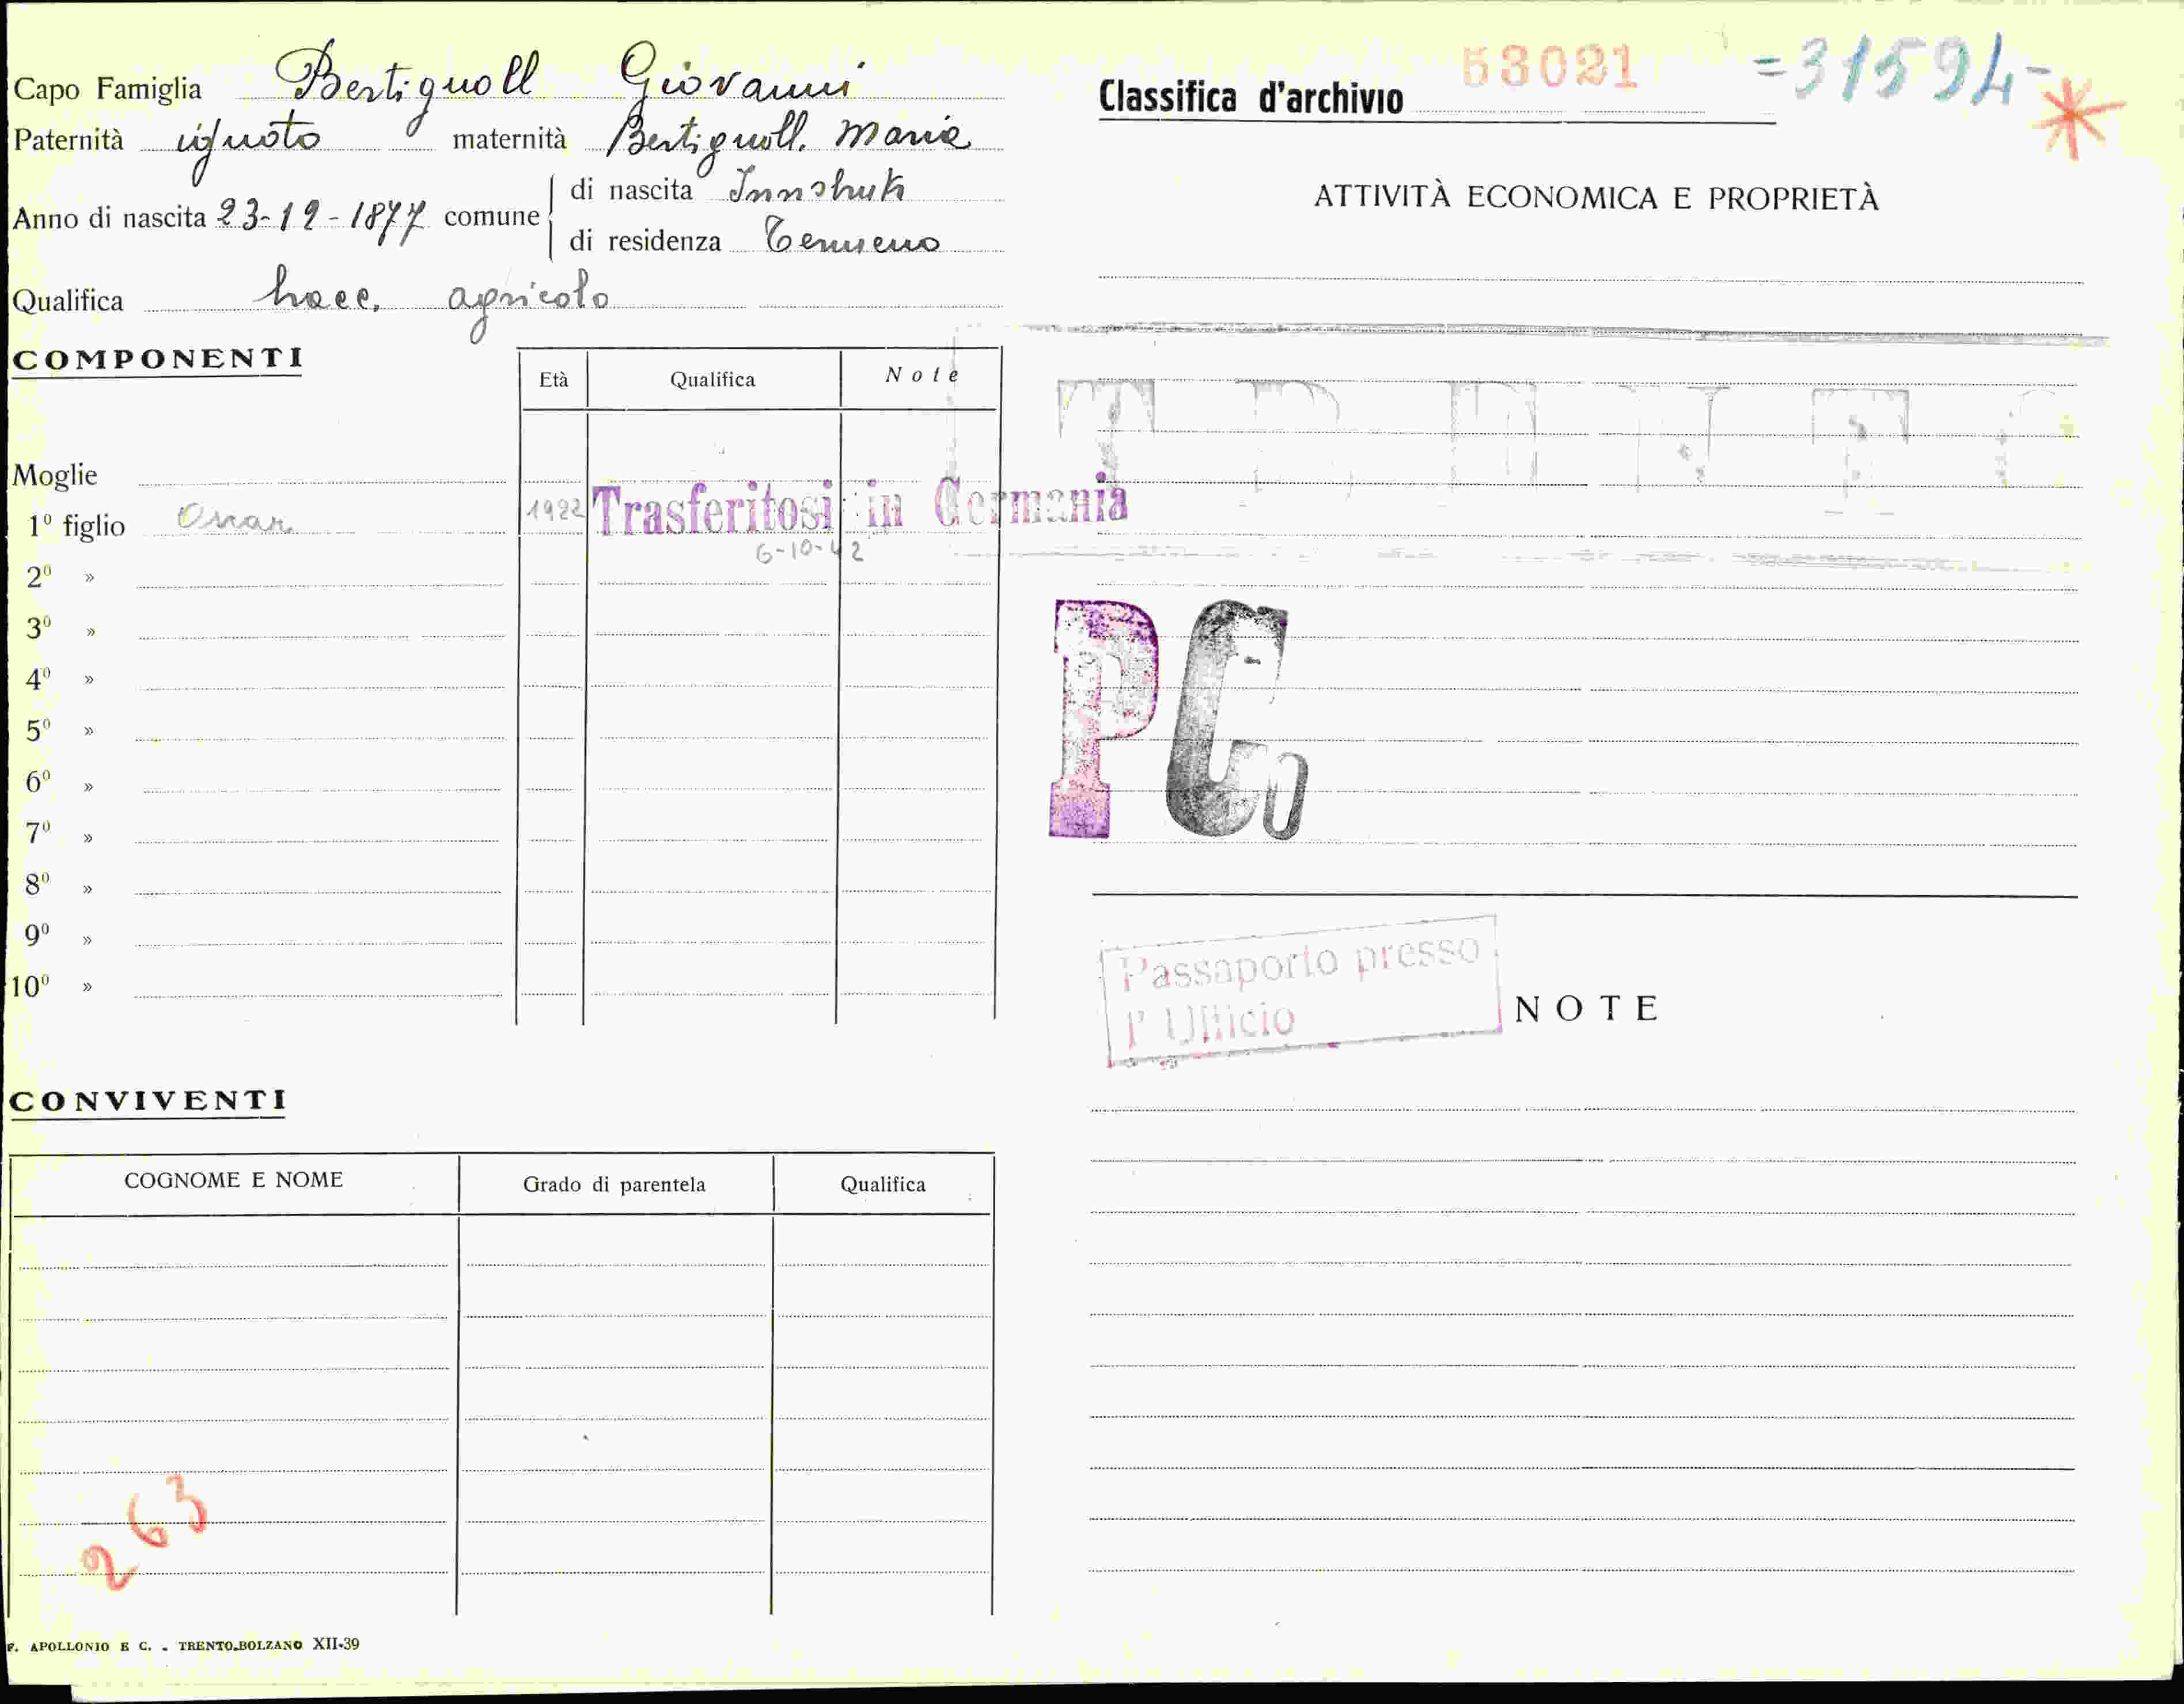 Capo Famiglia Bertignoll Giovanni
Paternità ignoto maternità Bertignoll. Maria
Anno di nascita 23-12-1877 comune di nascita Innsbruk
di residenza Termeno
Qualifica bracc. agricolo
COMPONENTI
Età Qualifica Note
Moglie
1º figlio Oscar 1922 Trasferitosi in Germania
6-10-42
2º »
3º »
4º »
5º »
6º »
7º »
8º »
9º »
10º »
CONVIVENTI
COGNOME E NOME Grado di parentela Qualifica
263
F. APOLLONIO E C. - TRENTO-BOLZANO XII-39
Classifica d'archivio 53021 =31594-
ATTIVITÀ ECONOMICA E PROPRIETÀ
PC
Passaporto presso
l' Ufficio
NOTE